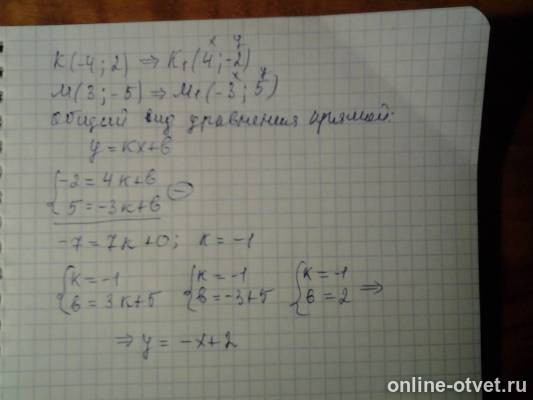 x y
K(-4; 2) ⇒ K₁(4; -2)
x y
M(3; -5) ⇒ M₁(-3; 5)
Общий вид уравнения прямой:
y = kx + b
{-2 = 4k + b
{5 = -3k + b (-)
-7 = 7k + 0; k = -1
{k = -1 {k = -1 {k = -1
{b = 3k + 5 {b = -3 + 5 {b = 2 ⇒
⇒ y = -x + 2
online-otvet.ru